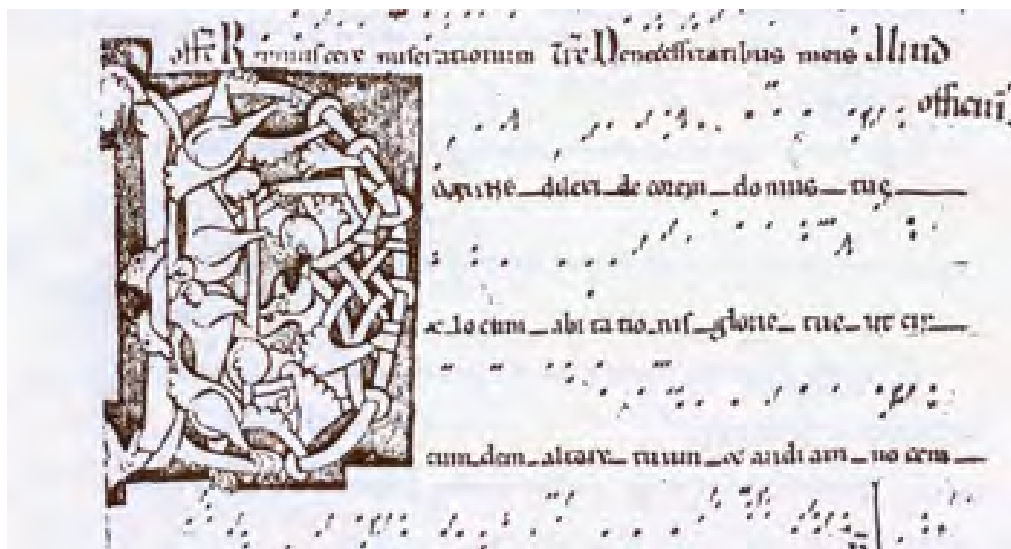 offr̄ Reminiscere miserationum Tr̄e De necessitatibus meis Aliud
officiū
Domine dilexi decorem domus tuę
&locum abitationis glorie tue ut cir
cumdem altare tuum & audiam uocem